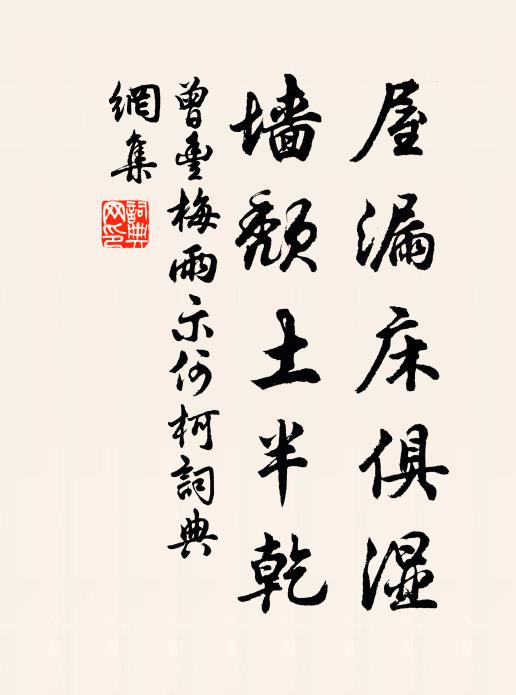 屋漏床俱湿
墙颓土半乾
曾豐梅雨示何柯詞典
網集
詞典
网印